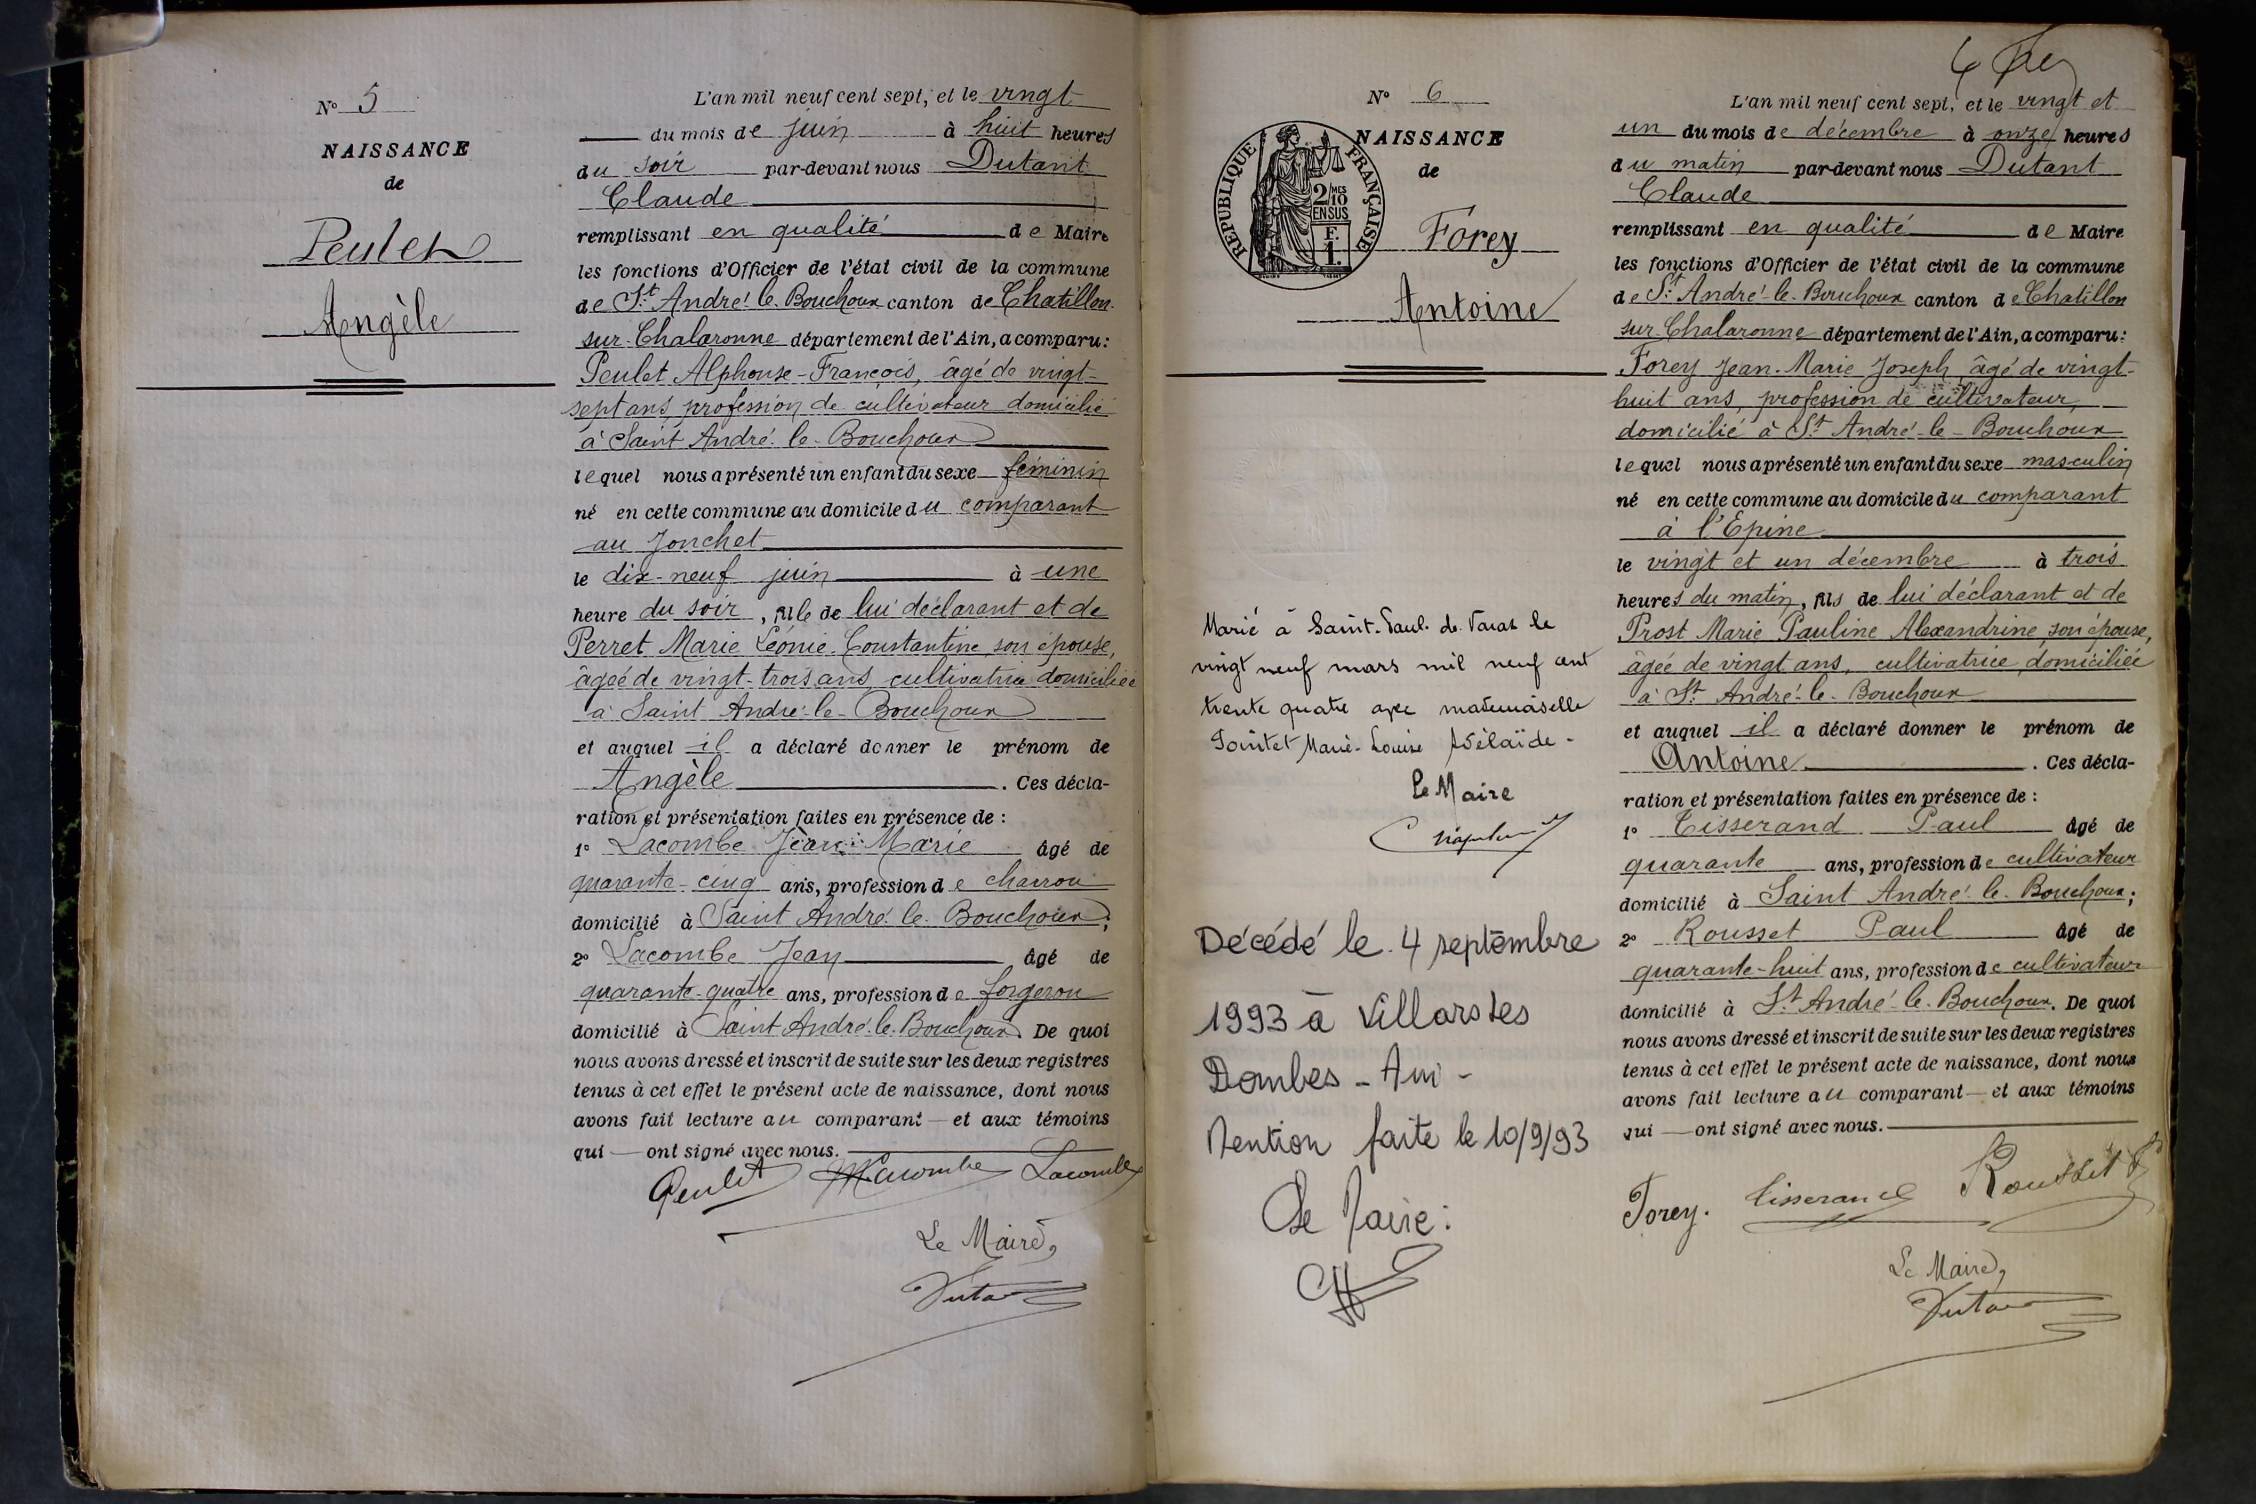 N° 5
NAISSANCE
de
Peulet
Angèle
L'an mil neuf cent sept, et le vingt
du mois de juin à huit heures
du soir par-devant nous Dutant
Claude
remplissant en qualité de Maire
les fonctions d'Officier de l'état civil de la commune
de St. André-le-Bouchoux canton de Chatillon-
sur-Chalaronne département de l'Ain, a comparu:
Peulet Alphonse-François, âgé de vingt-
sept ans, profession de cultivateur domicilié
à Saint André-le-Bouchoux
lequel nous a présenté un enfant du sexe féminin
né en cette commune au domicile du comparant
au Jonchet
le dix-neuf juin à une
heure du soir, fille de lui déclarant et de
Perret Marie Léonie-Constantine, son épouse,
âgée de vingt-trois ans cultivatrice domiciliée
à Saint André-le-Bouchoux
et auquel il a déclaré donner le prénom de
Angèle. Ces décla-
ration et présentation faites en présence de :
1° Lacombe Jean-Marie âgé de
quarante-cinq ans, profession de charron
domicilié à Saint André-le-Bouchoux;
2° Lacombe Jean âgé de
quarante-quatre ans, profession de forgeron
domicilié à Saint André-le-Bouchoux De quoi
nous avons dressé et inscrit de suite sur les deux registres
tenus à cet effet le présent acte de naissance, dont nous
avons fait lecture au comparant et aux témoins
qui ont signé avec nous.
Peulet Lacombe Lacombe
Le Maire,
Dutant
N° 6
NAISSANCE
de
RÉPUBLIQUE FRANÇAISE
2/10
MES
EN SUS
F.
1.
Forey
Antoine
Marié à Saint-Paul-de-Varax le
vingt neuf mars mil neuf cent
trente quatre avec mademoiselle
Marie-Louise Adélaïde -
Le Maire
Décédé le 4 septembre
1993 à Villars les
Dombes - Ain -
Mention faite le 10/9/93
Le Maire :
L'an mil neuf cent sept, et le vingt et
un du mois de décembre à onze heures
du matin par-devant nous Dutant
Claude
remplissant en qualité de Maire
les fonctions d'Officier de l'état civil de la commune
de St. André-le-Bouchoux canton de Chatillon
sur-Chalaronne département de l'Ain, a comparu:
Forey Jean-Marie Joseph, âgé de vingt-
huit ans, profession de cultivateur,
domicilié à St André-le-Bouchoux
lequel nous a présenté un enfant du sexe masculin
né en cette commune au domicile du comparant
à l'Epine
le vingt et un décembre à trois
heures du matin, fils de lui déclarant et de
Prost Marie Pauline Alexandrine, son épouse,
âgée de vingt ans, cultivatrice, domiciliée
à St André-le-Bouchoux
et auquel il a déclaré donner le prénom de
Antoine. Ces décla-
ration et présentation faites en présence de :
1° Tisserand Paul âgé de
quarante ans, profession de cultivateur
domicilié à Saint André-le-Bouchoux;
2° Rousset Paul âgé de
quarante-huit ans, profession de cultivateur
domicilié à St André-le-Bouchoux. De quoi
nous avons dressé et inscrit de suite sur les deux registres
tenus à cet effet le présent acte de naissance, dont nous
avons fait lecture au comparant et aux témoins
qui ont signé avec nous.
Forey. Tisserand Rousset P
Le Maire,
Dutant